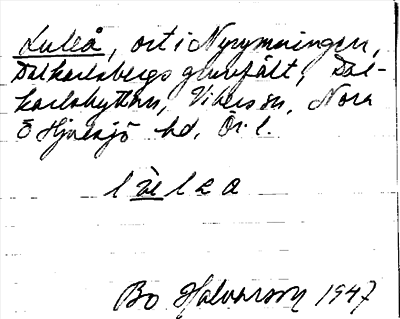 Luleå, ort i Nyrymningen,
Dalkarlsbergs gruvfält, Dal-
karlshyttan, Vikers sn, Nora
& Hjulsjö hd, Ör. l.
Bo Halvarson 1947